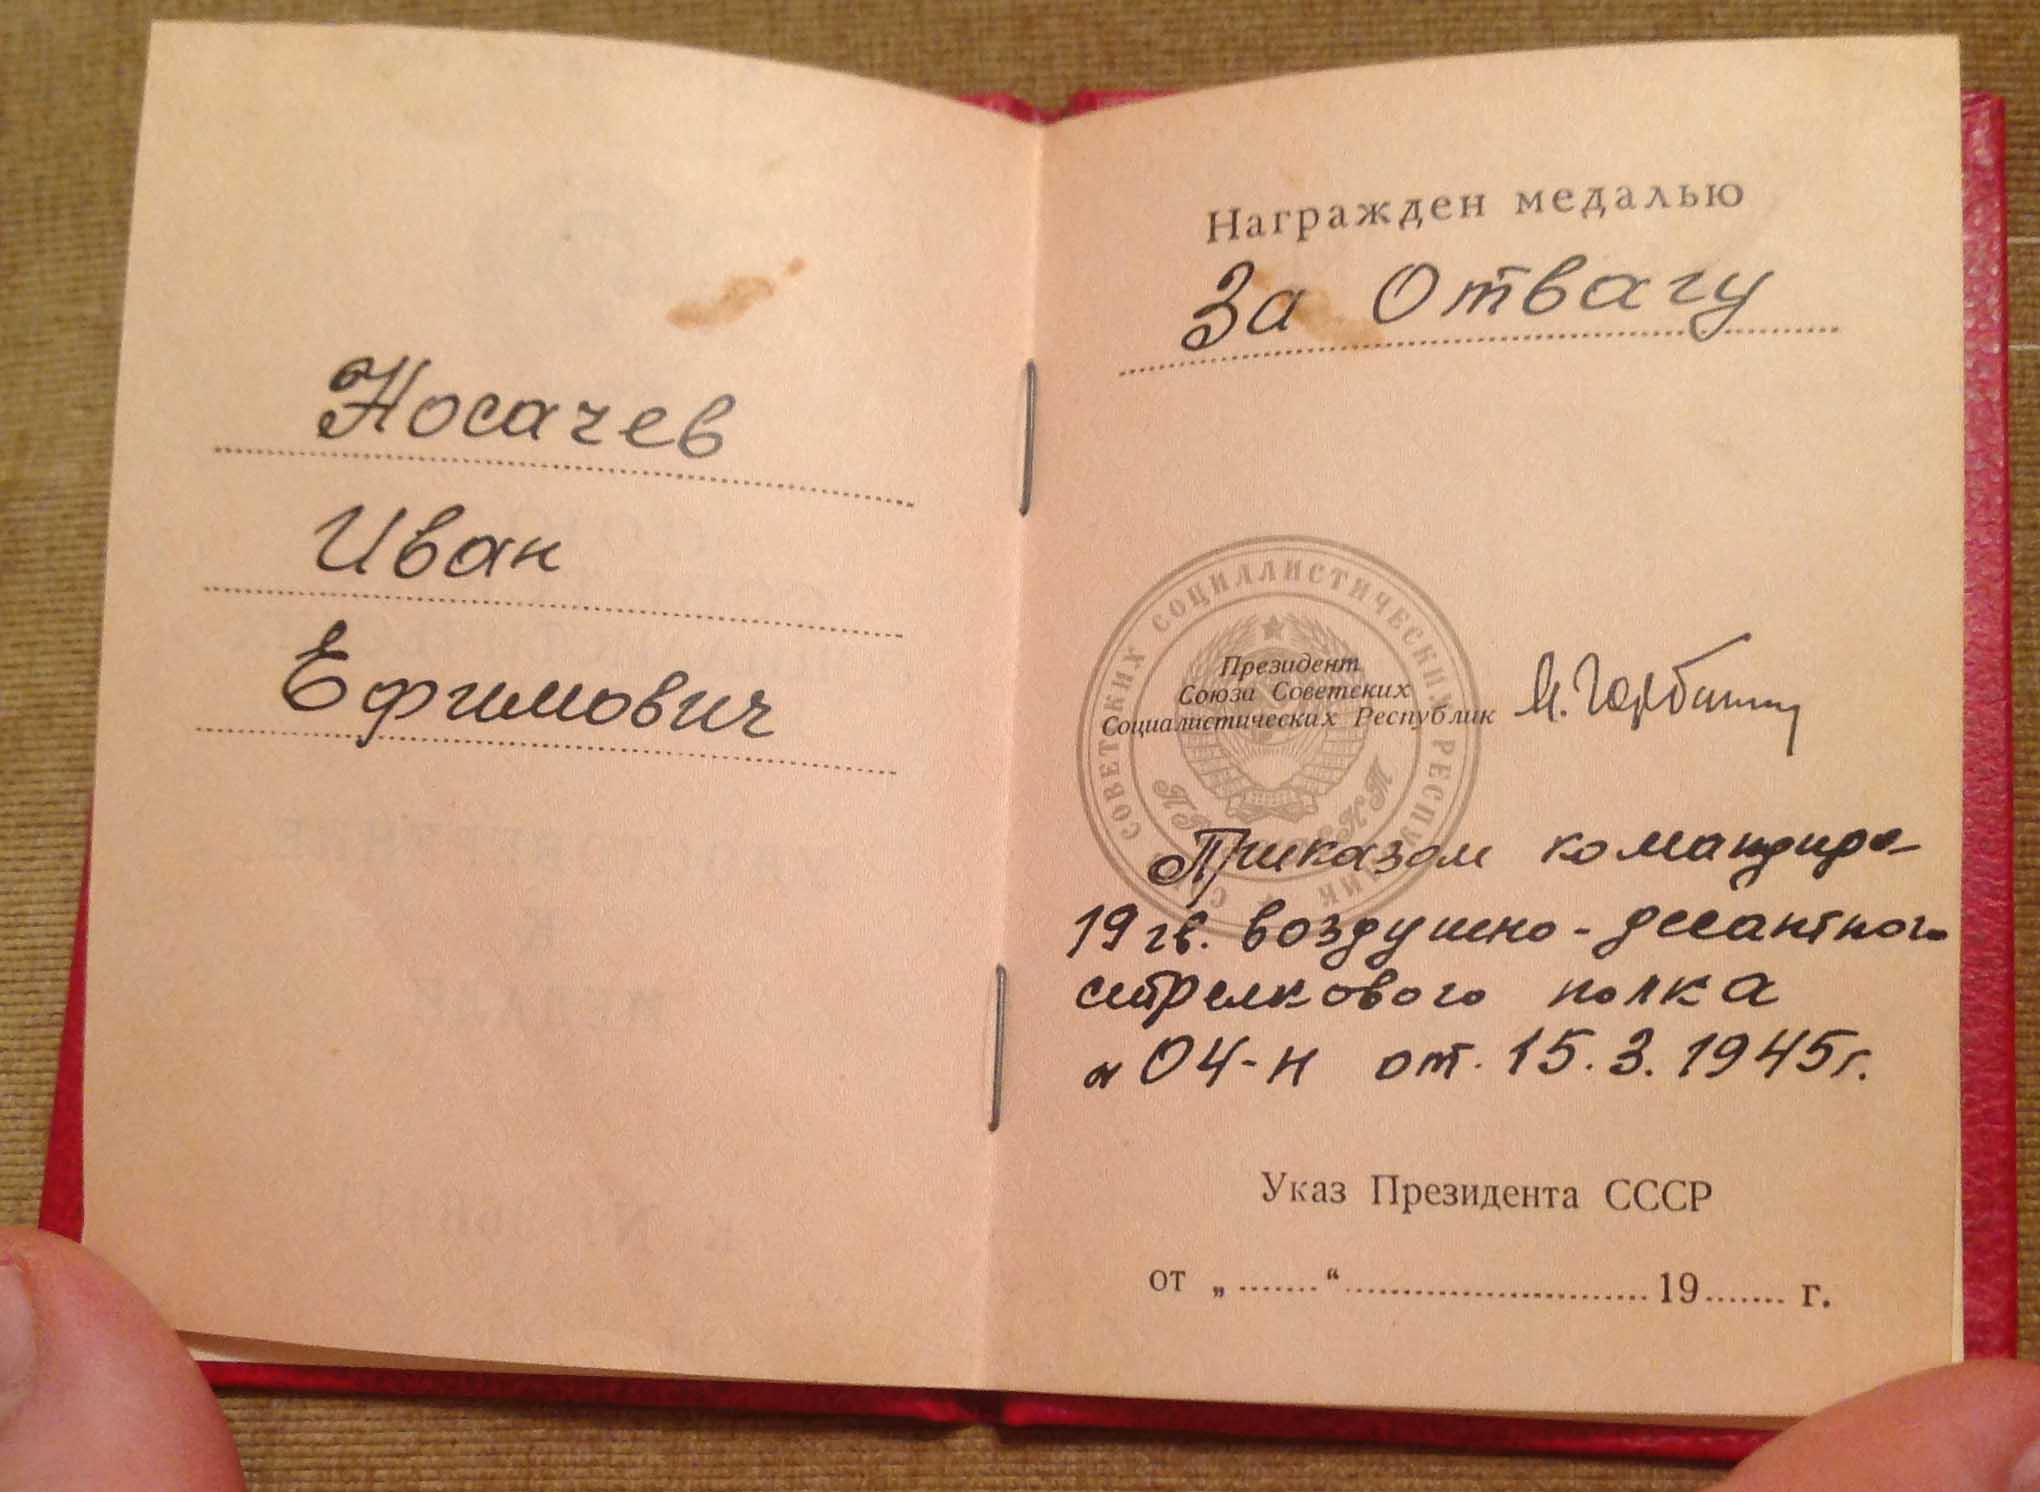 Носачев
Иван
Ефимович
Награжден медалью
За Отвагу
СОЮЗ СОВЕТСКИХ СОЦИАЛИСТИЧЕСКИХ РЕСПУБЛИК
ПРЕЗИДЕНТ
Президент
Союза Советских
Социалистических Республик
М. Горбачев
Приказом командира
19 гв. воздушно-десантного
стрелкового полка
№ 04-н от 15.3.1945г.
Указ Президента СССР
от „ ....... “ .............................. 19 ....... г.